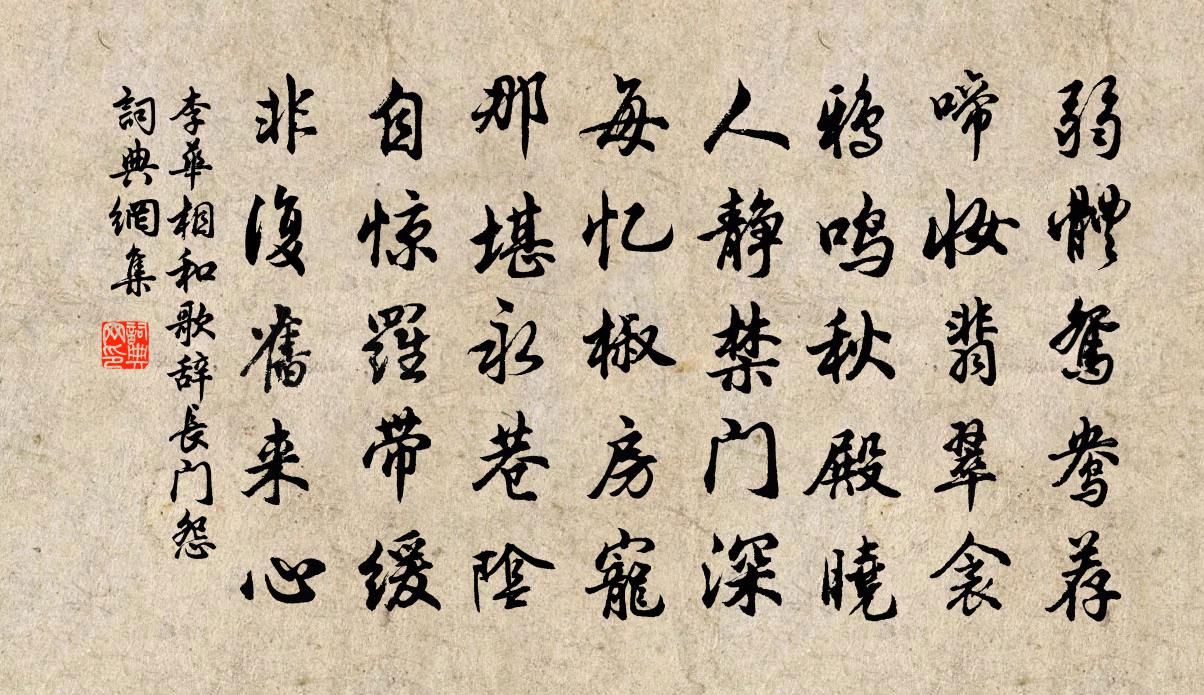 弱體鴛鴦荐
啼妆翡翠衾
鴉鸣秋殿曉
人静禁门深
每忆椒房寵
那堪永巷陰
自惊羅带缓
非復舊来心
李華相和歌辞長门怨
詞典網集
詞典网印